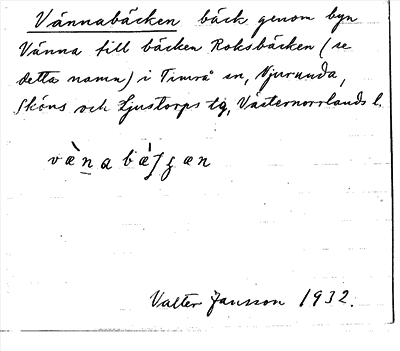 Vännabäcken bäck genom byn
Vänna till bäcken Roksbäcken (se
detta namn) i Timrå sn, Njurunda,
Sköns och Ljustorps tg, Västernorrlands l.
Valter Jansson 1932.